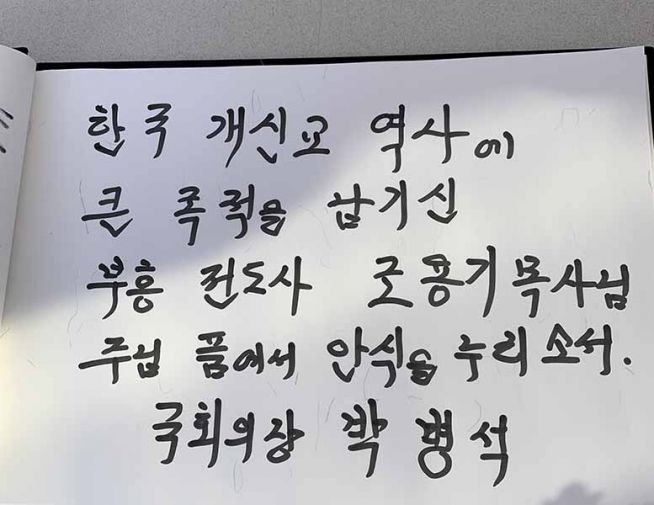 한국 개신교 역사에
큰 족적을 남기신
부흥 전도사 조용기 목사님
주님 품에서 안식을 누리소서.
국회의장 박병석